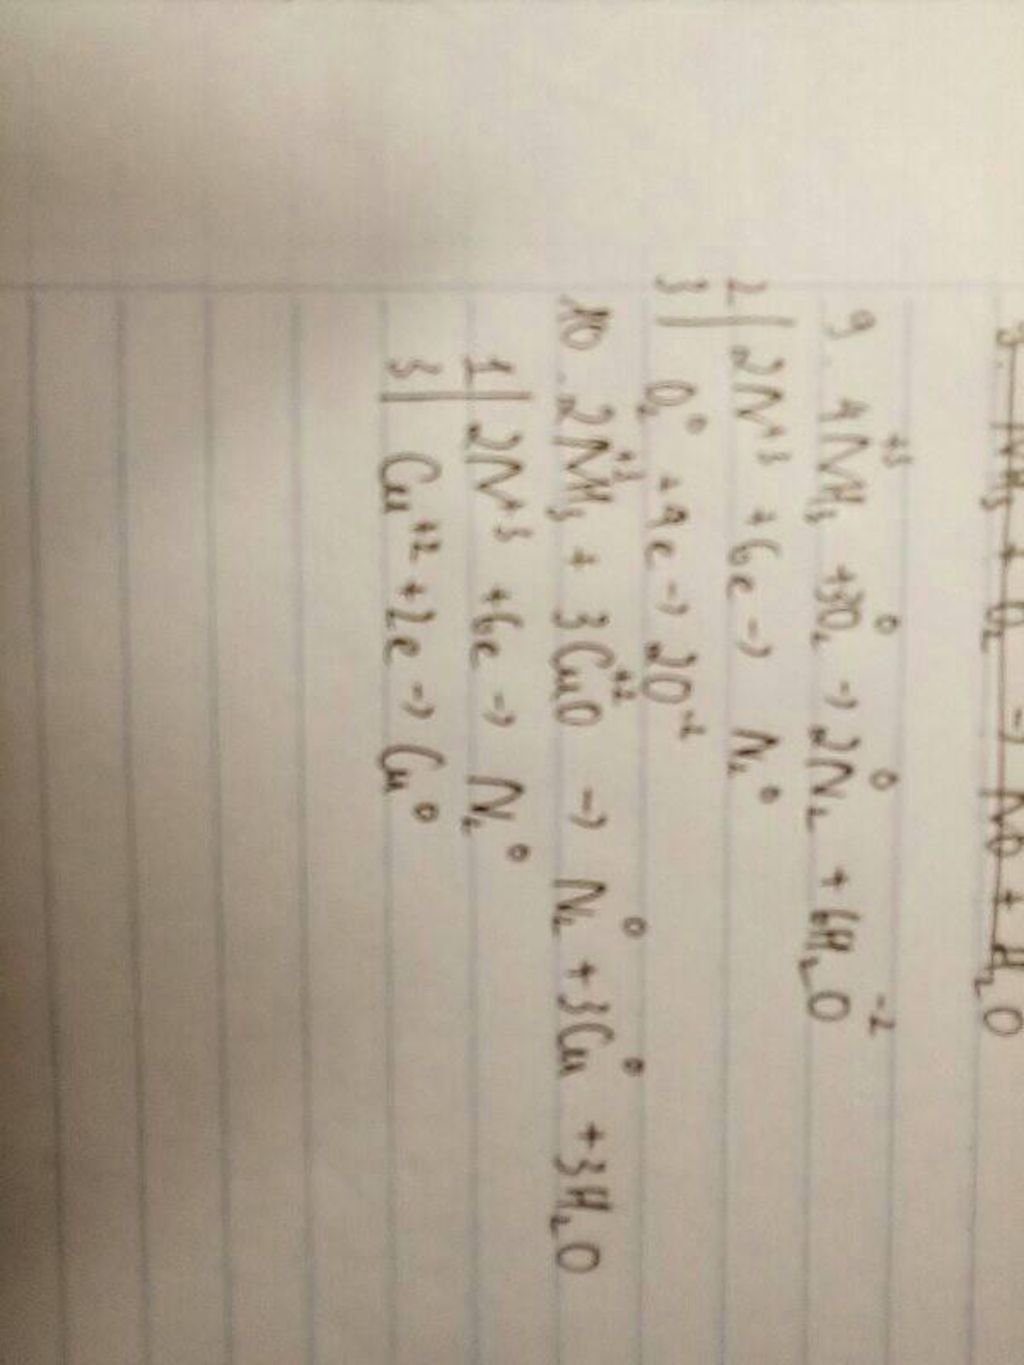 NH₃ + O₂ → NO + H₂O
9. 4N⁺³H₃ + 3O₂⁰ → 2N₂⁰ + 6H₂O⁻²
2 | 2N⁺³ + 6e → N₂⁰
3 | O₂⁰ + 4e → 2O⁻²
10. 2N⁺³H₃ + 3Cu⁺²O → N₂⁰ + 3Cu⁰ + 3H₂O
1 | 2N⁺³ + 6e → N₂⁰
3 | Cu⁺² + 2e → Cu⁰